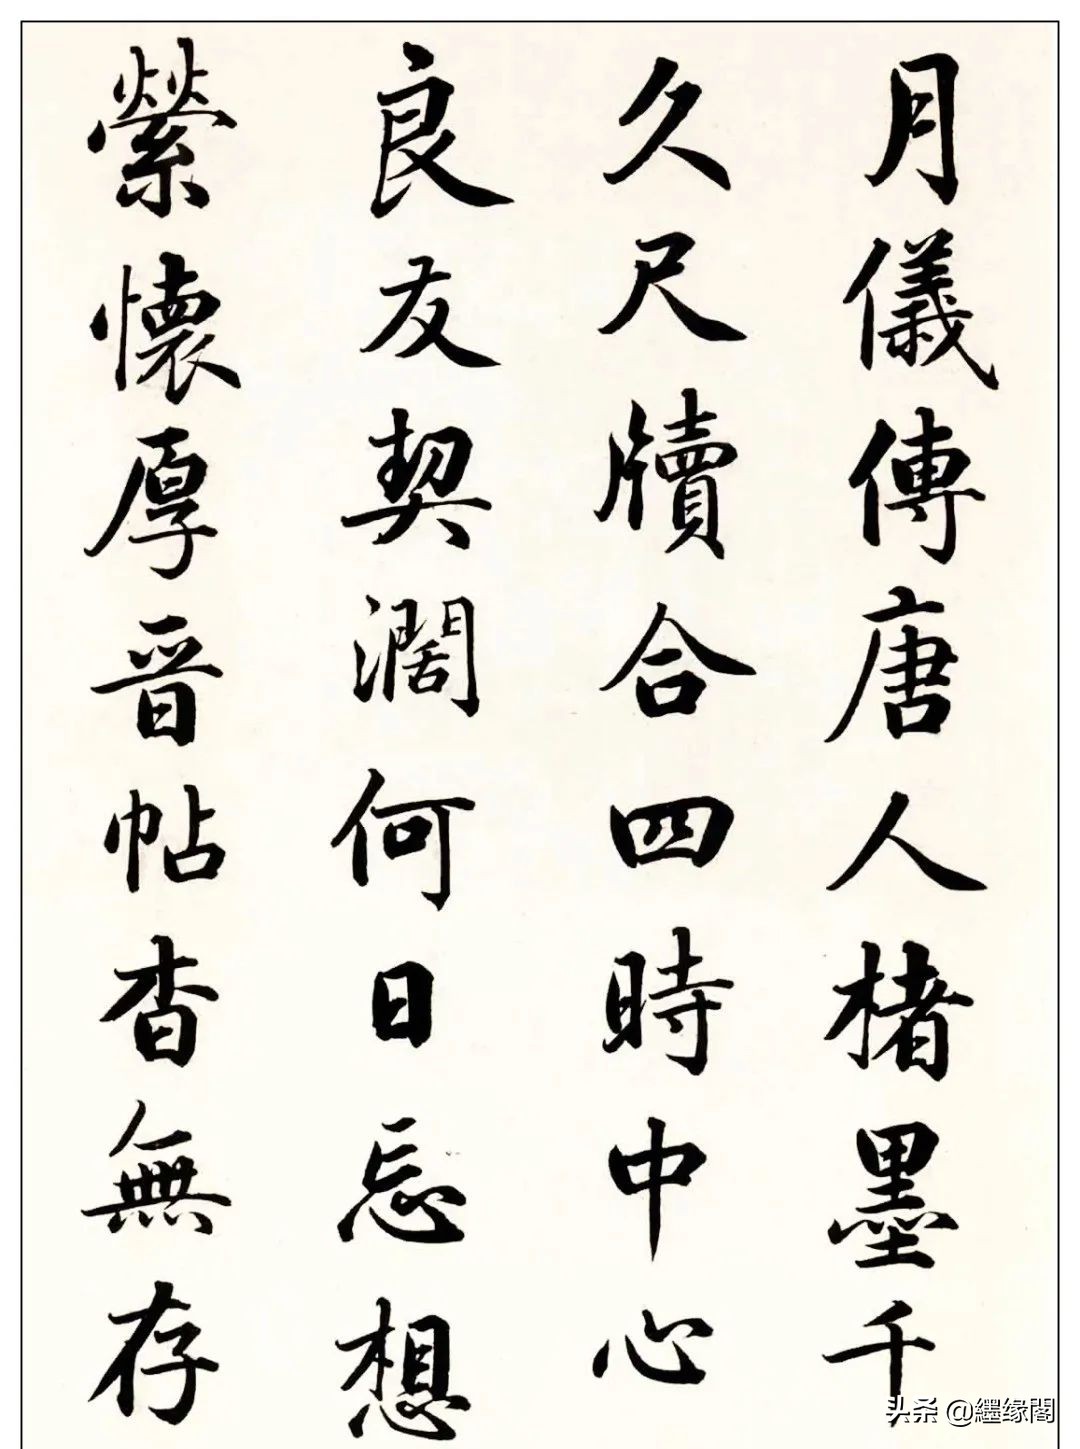 月儀傳唐人楮墨千
久尺牘合四時中心
良友契濶何日忘想
縈懷厚晉帖杳無存
头条 @纆缘閣